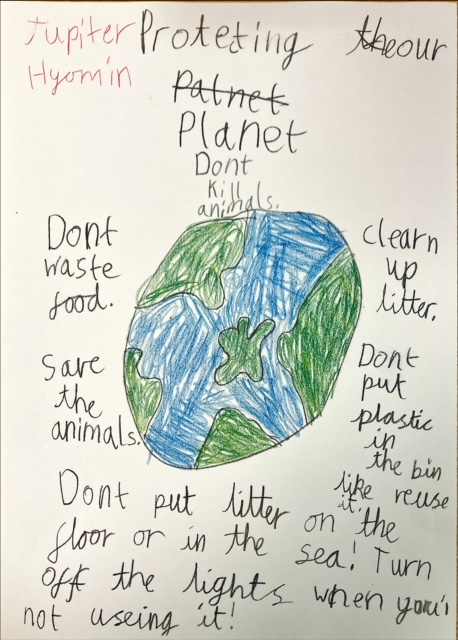 Jupiter Proteting the our
Hyomin
Palnet
Planet
Dont
kill
animals.
Dont
waste
food.
clearn
up
litter.
Save
the
animals.
Dont
put
plastic
in
the bin
like reuse
it.
Dont put litter on the
floor or in the sea! Turn
off the lights when you'r
not useing it!